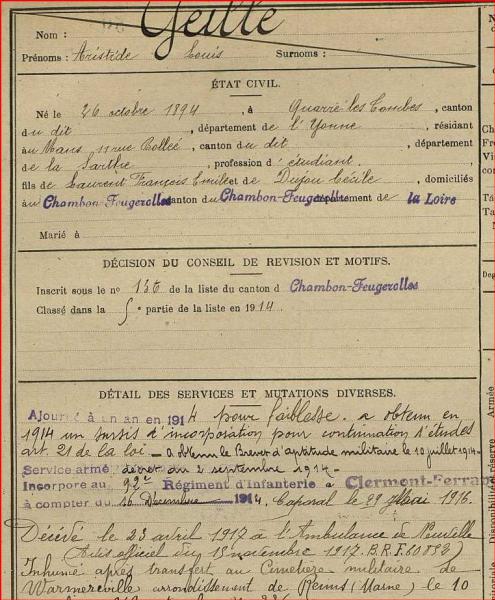 Nom : Geille
Prénoms : Aristide Louis Surnoms :
ÉTAT CIVIL.
Né le 26 octobre 1894, à Quarré les Tombes, canton
du dit, département de l'Yonne, résidant
au Mans 11 rue Collée, canton du dit, département
de la Sarthe, profession d'étudiant,
fils de Laurent François Emile et de Dujou Cécile, domiciliés
à Chambon-Feugerolles canton du Chambon-Feugerolles département de la Loire
Marié à
DÉCISION DU CONSEIL DE REVISION ET MOTIFS.
Inscrit sous le no 136 de la liste du canton d Chambon-Feugerolles
Classé dans la 5e partie de la liste en 1914
DÉTAIL DES SERVICES ET MUTATIONS DIVERSES.
Ajourné à un an en 1914 pour faiblesse. a obtenu en
1914 un sursis d'incorporation pour continuation d'études
art. 21 de la loi - Obtenu le Brevet d'aptitude militaire le 10 juillet 1914 -
Service armé décret du 2 septembre 1914 -
Incorporé au 92e Régiment d'Infanterie à Clermont-Ferrand
à compter du 16 Décembre 1914. Caporal le 29 Mai 1916.
Décédé le 23 avril 1917 à l'Ambulance de Neuville
(Avis officiel du 18 novembre 1917.
Inhumé après transfert au Cimetière militaire de
Warmerville arrondissement de Reims (Marne) le 10